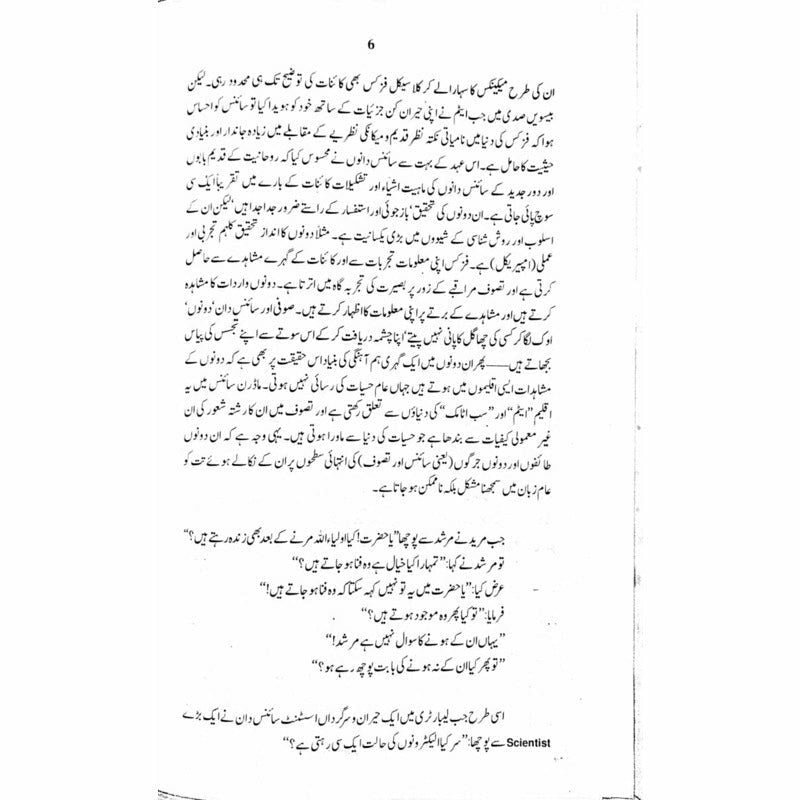 6
ان کی طرح میکینکس کا سہارا لے کر کلاسیکل فزکس بھی کائنات کی توضیح تک ہی محدود رہی۔ لیکن
بیسویں صدی میں جب ایٹم نے اپنی حیران کن جزئیات کے ساتھ خود کو ہویدا کیا تو سائنس کو احساس
ہوا کہ فزکس کی دنیا میں نامیاتی نکتہ نظر قدیم و میکانکی نظریے کے مقابلے میں زیادہ جاندار اور بنیادی
حیثیت کا حامل ہے۔ اس عہد کے بہت سے سائنس دانوں نے محسوس کیا کہ روحانیت کے قدیم بابوں
اور دور جدید کے سائنس دانوں کی ماہیت اشیاء اور تشکیلات کائنات کے بارے میں تقریباً ایک سی
سوچ پائی جاتی ہے۔ ان دونوں کی تحقیق، بازجوئی اور استفسار کے راستے ضرور جدا جدا ہیں، لیکن ان کے
اسلوب اور روش شناسی کے شیووں میں بڑی یکسانیت ہے۔ مثلاً دونوں کا انداز تحقیق کلہم تجربی اور
عملی (امپیریکل) ہے۔ فزکس اپنی معلومات تجربات سے اور کائنات کے گہرے مشاہدے سے حاصل
کرتی ہے اور تصوف مراقبے کے زور پر بصیرت کی تجربہ گاہ میں اترتا ہے۔ دونوں واردات کا مشاہدہ
کرتے ہیں اور مشاہدے کے برتے پر اپنی معلومات کا اظہار کرتے ہیں۔ صوفی اور سائنس دان، دونوں،
اوک لگا کر کسی کی چھاگل کا پانی نہیں پیتے، اپنا چشمہ دریافت کر کے اس سوتے سے اپنے تجسس کی پیاس
بجھاتے ہیں —— پھر ان دونوں میں ایک گہری ہم آہنگی کی بنیاد اس حقیقت پر بھی ہے کہ دونوں کے
مشاہدات ایسی اقلیموں میں ہوتے ہیں جہاں عام حسیات کی رسائی نہیں ہوتی۔ ماڈرن سائنس میں یہ
اقلیم "ایٹم" اور "سب اٹامک" کی دنیاؤں سے تعلق رکھتی ہے اور تصوف میں ان کا رشتہ شعور کی ان
غیر معمولی کیفیات سے بندھا ہے جو حسیات کی دنیا سے ماورا ہوتی ہیں۔ یہی وجہ ہے کہ ان دونوں
طائفوں اور دونوں جرگوں (یعنی سائنس اور تصوف) کی انتہائی سطحوں پر ان کے نکالے ہوئے تت کو
عام زبان میں سمجھنا مشکل بلکہ ناممکن ہو جاتا ہے۔
جب مرید نے مرشد سے پوچھا "یا حضرت! کیا اولیاء اللہ مرنے کے بعد بھی زندہ رہتے ہیں؟"
تو مرشد نے کہا: "تمہارا کیا خیال ہے وہ فنا ہو جاتے ہیں؟"
عرض کیا: "یا حضرت میں یہ تو نہیں کہہ سکتا کہ وہ فنا ہو جاتے ہیں!"
فرمایا: "تو کیا پھر وہ موجود ہوتے ہیں؟"
"یہاں ان کے ہونے کا سوال نہیں ہے مرشد!"
"تو پھر کیا ان کے نہ ہونے کی بابت پوچھ رہے ہو؟"
اسی طرح جب لیبارٹری میں ایک حیران و سرگرداں اسسٹنٹ سائنس دان نے ایک بڑے
Scientist سے پوچھا: "سر کیا الیکٹرونوں کی حالت ایک سی رہتی ہے؟"